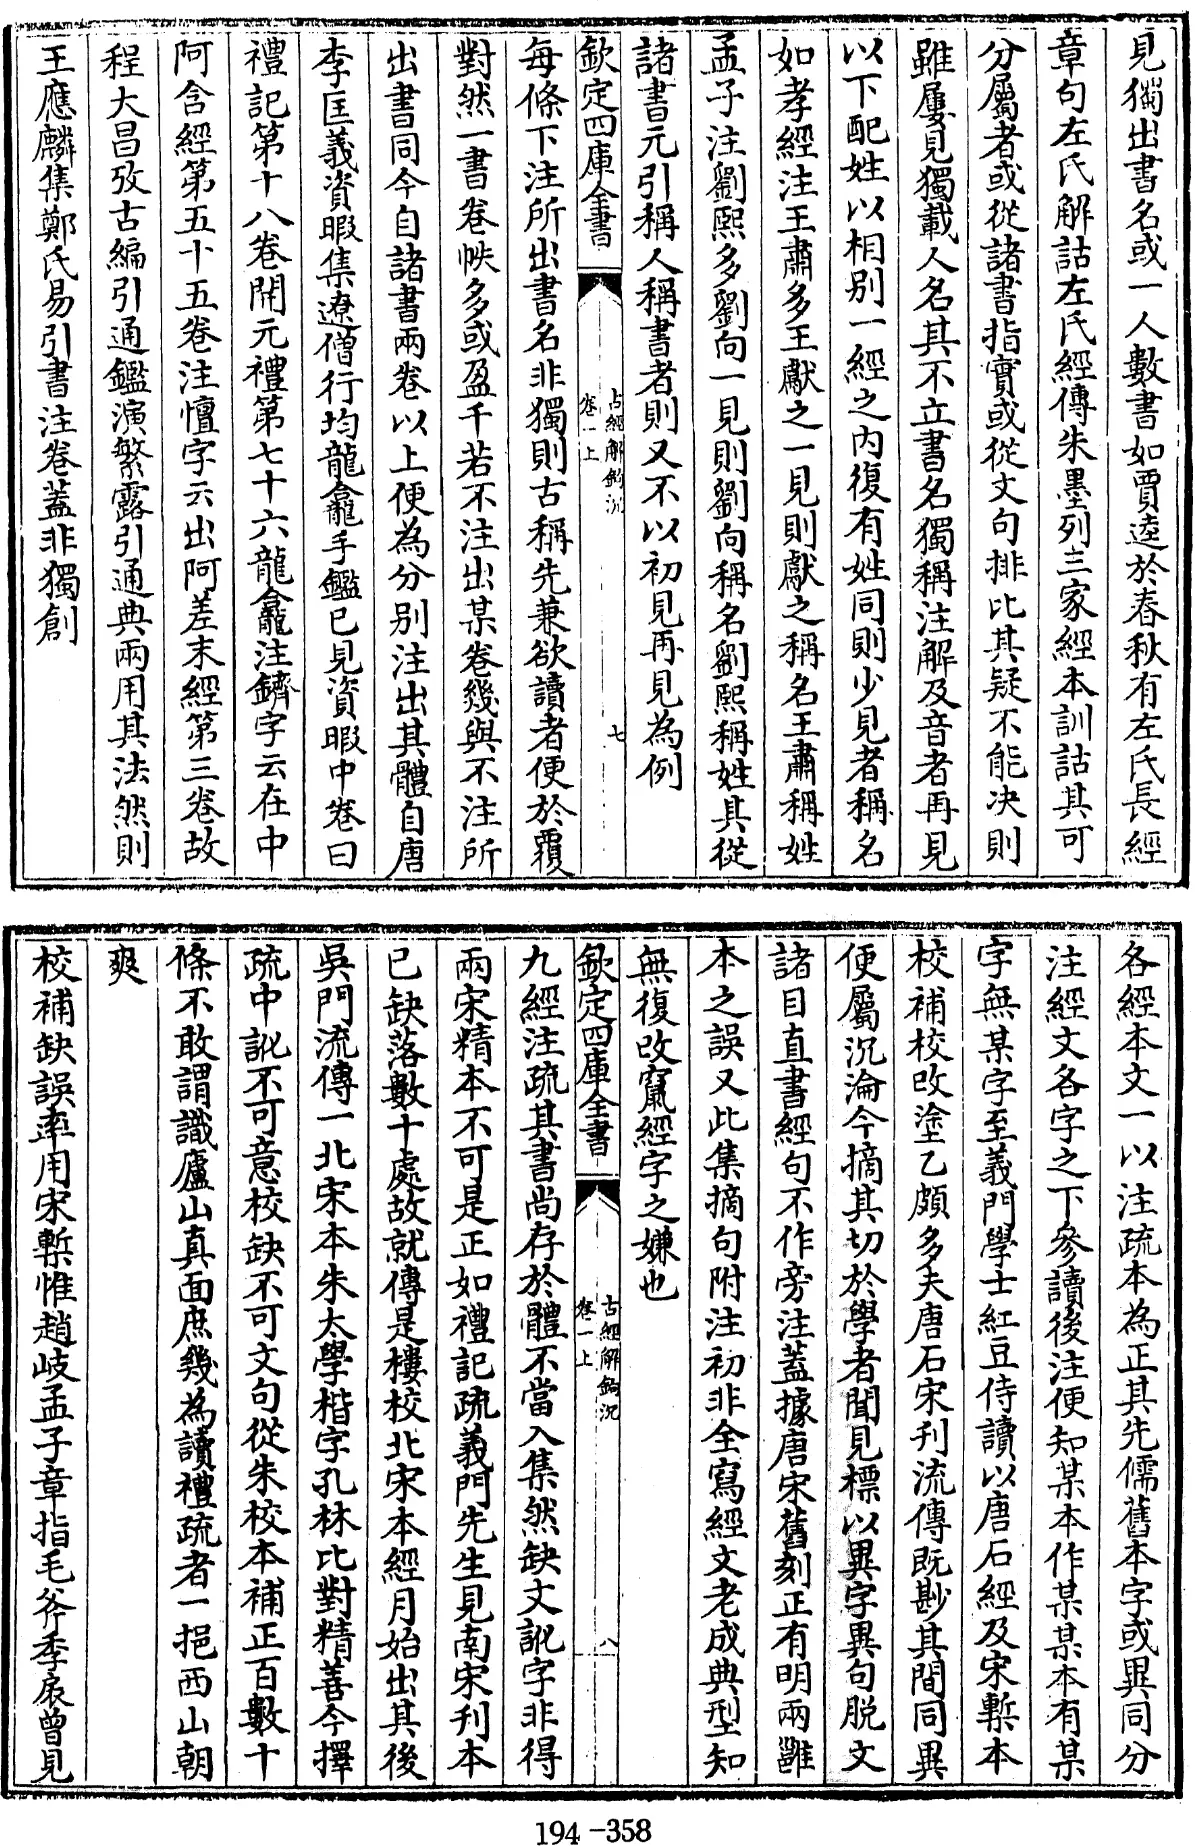 見獨出書名或一人數書如賈逵於春秋有左氏長經
章句左氏解詁左氏經傳朱墨列三家經本訓詁其可
分屬者或從諸書指實或從文句排比其疑不能決則
雖屢見獨載人名其不立書名獨稱注解及音者再見
以下配姓以相別一經之內復有姓同則少見者稱名
如孝經注王肅多王獻之一見則獻之稱名王肅稱姓
孟子注劉熙多劉向一見則劉向稱名劉熙稱姓其從
諸書元引稱人稱書者則又不以初見再見為例
欽定四庫全書
古經解鉤沉
卷一上
七
每條下注所出書名非獨則古稱先兼欲讀者便於覆
對然一書卷帙多或盈千若不注出某卷幾與不注所
出書同今自諸書兩卷以上便為分別注出其體自唐
李匡義資暇集遼僧行均龍龕手鑑已見資暇中卷曰
禮記第十八卷開元禮第七十六龍龕注鑇字云在中
阿含經第五十五卷注㤞字云出阿差末經第三卷故
程大昌攷古編引通鑑演繁露引通典兩用其法然則
王應麟集鄭氏易引書注卷蓋非獨創
各經本文一以注疏本為正其先儒舊本字或異同分
注經文各字之下參讀後注便知某本作某某本有某
字無某字至義門學士紅豆侍讀以唐石經及宋槧本
校補校改塗乙頗多夫唐石宋刋流傳既尠其間同異
便屬沉淪今摘其切於學者聞見標以異字異句脫文
諸目直書經句不作旁注蓋據唐宋舊刻正有明兩雝
本之誤又此集摘句附注初非全寫經文老成典型知
無復改竄經字之嫌也
欽定四庫全書
古經解鉤沉
卷一上
八
九經注疏其書尚存於體不當入集然缺文訛字非得
兩宋精本不可是正如禮記疏義門先生見南宋刋本
已缺落數十處故就傳是樓校北宋本經月始出其後
吳門流傳一北宋本朱太學楷字孔林比對精善今擇
疏中訛不可意校缺不可文句從朱校本補正百數十
條不敢謂識廬山真面庶幾為讀禮疏者一挹西山朝
爽
校補缺誤率用宋槧惟趙岐孟子章指毛斧季扆曾見
194-358